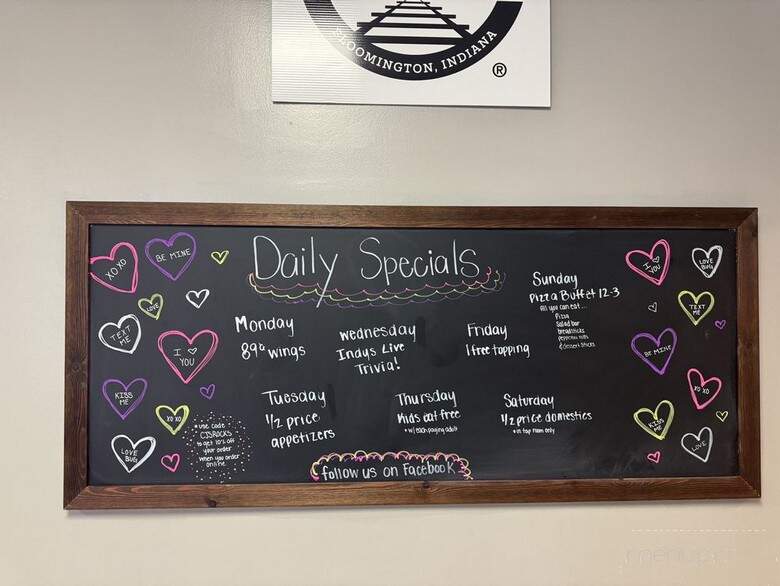 BLOOMINGTON, INDIANA
®
Daily Specials
Monday
89¢ wings
Wednesday
Indys Live
Trivia!
Friday
1 free topping
Sunday
Pizza Buffet 12-3
All you can eat...
Pizza
Salad bar
breadsticks
pepperoni rolls
& dessert sticks
Tuesday
1/2 price
appetizers
Thursday
Kids eat free
*w/each paying adult
Saturday
1/2 price domestics
*in tap room only
follow us on Facebook
*use code
CJSROCKS
to get 10% off
your order
when you order
online
XOXO
BE MINE
LOVE
TEXT
ME
I ♡
YOU
KISS
ME
XOXO
LOVE
BUG
I ♡
YOU
LOVE
BUG
TEXT
ME
BE MINE
XOXO
KISS
ME
LOVE